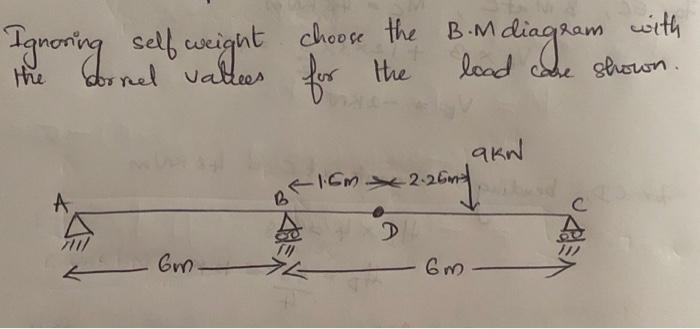 Ignoring self weight choose the B.M diagram with
the values for the load case shown.
9KN
1.5m 2.25m
A B C
D
6m 6m